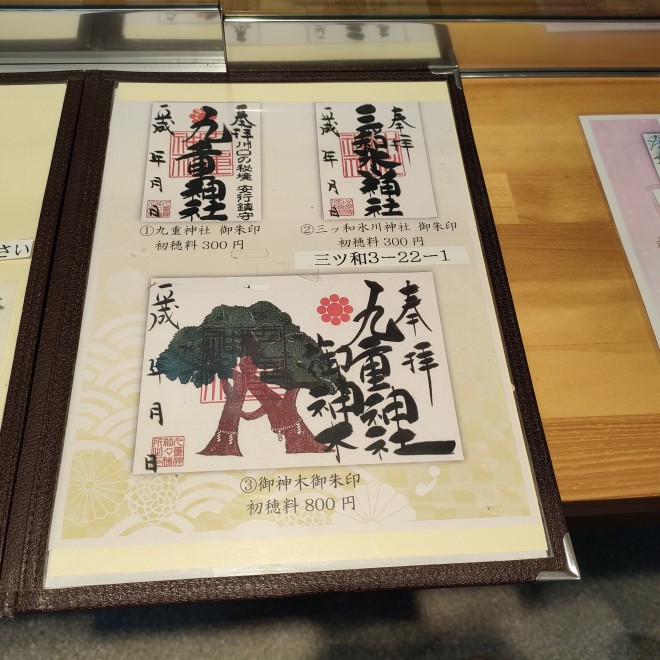 奉拝
川口の秘境 安行鎮守
九重神社
平成 年 月 日
①九重神社 御朱印
初穂料300円
奉拝
三ツ和氷川神社
平成 年 月 日
②三ッ和氷川神社 御朱印
初穂料300円
三ツ和3-22-1
奉拝
九重神社
御神木
平成 年 月 日
③御神木御朱印
初穂料800円
さい